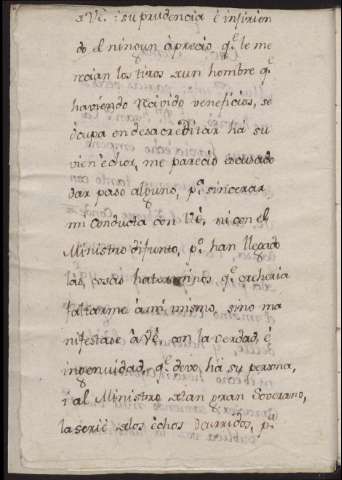 a Vê. : su prudencia é infirien
do el ningun àprecio q.e le me
recian los tiros de un hombre q.e
haviendo Recivido veneficios, se
òcupa en desacreditar hà su
vien echor, me pareciò escusado
dar paso alguno, p.a sincerar
mi conducta con Vê. ni con el
Ministro difunto, p.o han llegado
las cosas hà terminos q.e creheria
faltarme à mò mismo, sino ma
nifestase à Vê. con la verdad, é
ingenuidad, q.e devo, hà su persona,
i al Ministro de un gran Soverano,
la serie de los èchos Ocurridos, p.a